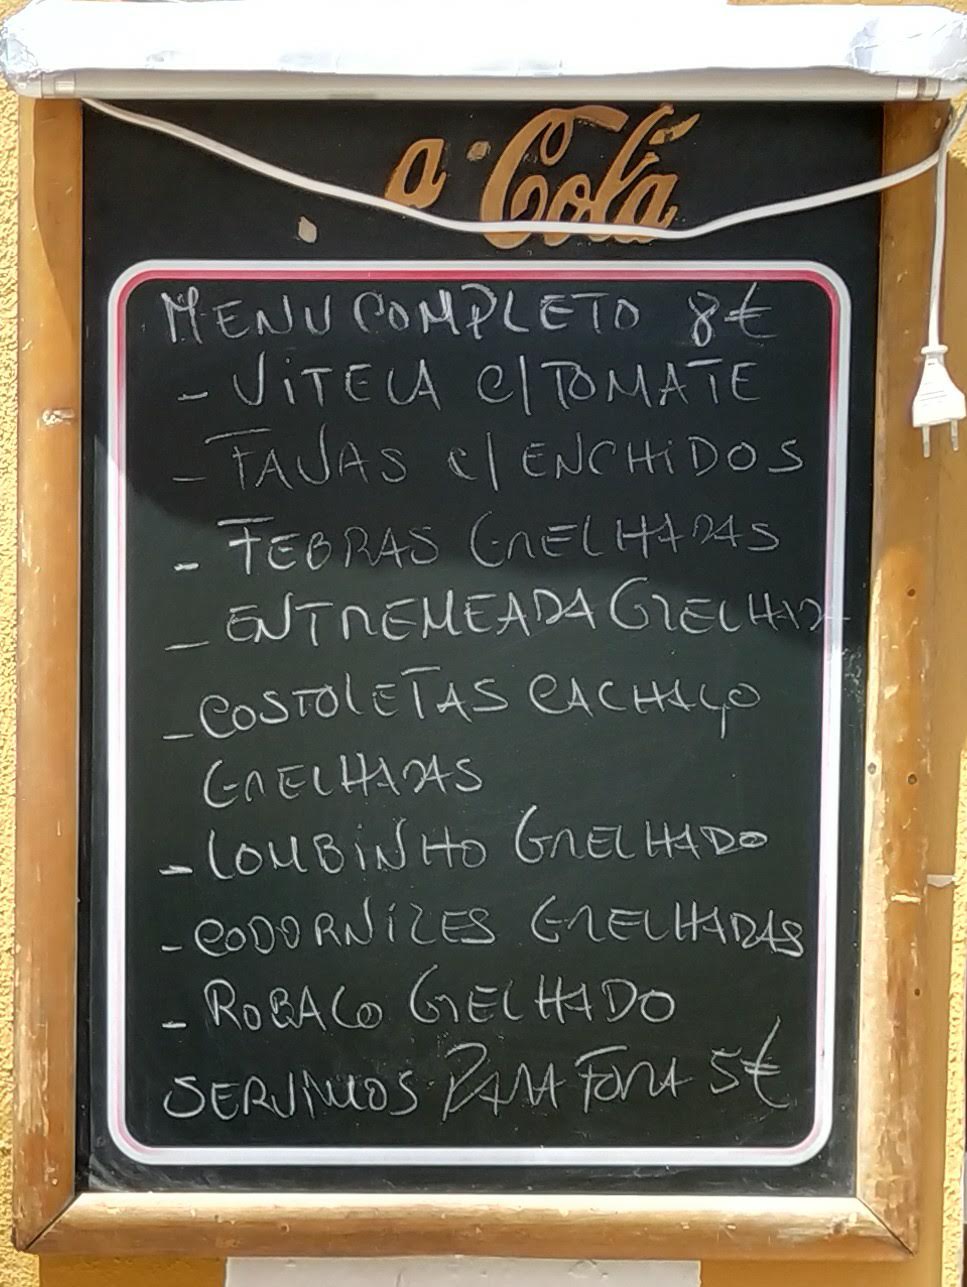 a·Cola
MENU COMPLETO 8€
- VITELA C/TOMATE
- FAVAS C/ENCHIDOS
- FEBRAS GRELHADAS
- ENTREMEADA GRELHADA
- COSTOLETAS CACHAÇO
GRELHADAS
- LOMBINHO GRELHADO
- CODORNIZES GRELHADAS
- ROBALO GRELHADO
SERVIMOS PARA FORA 5€